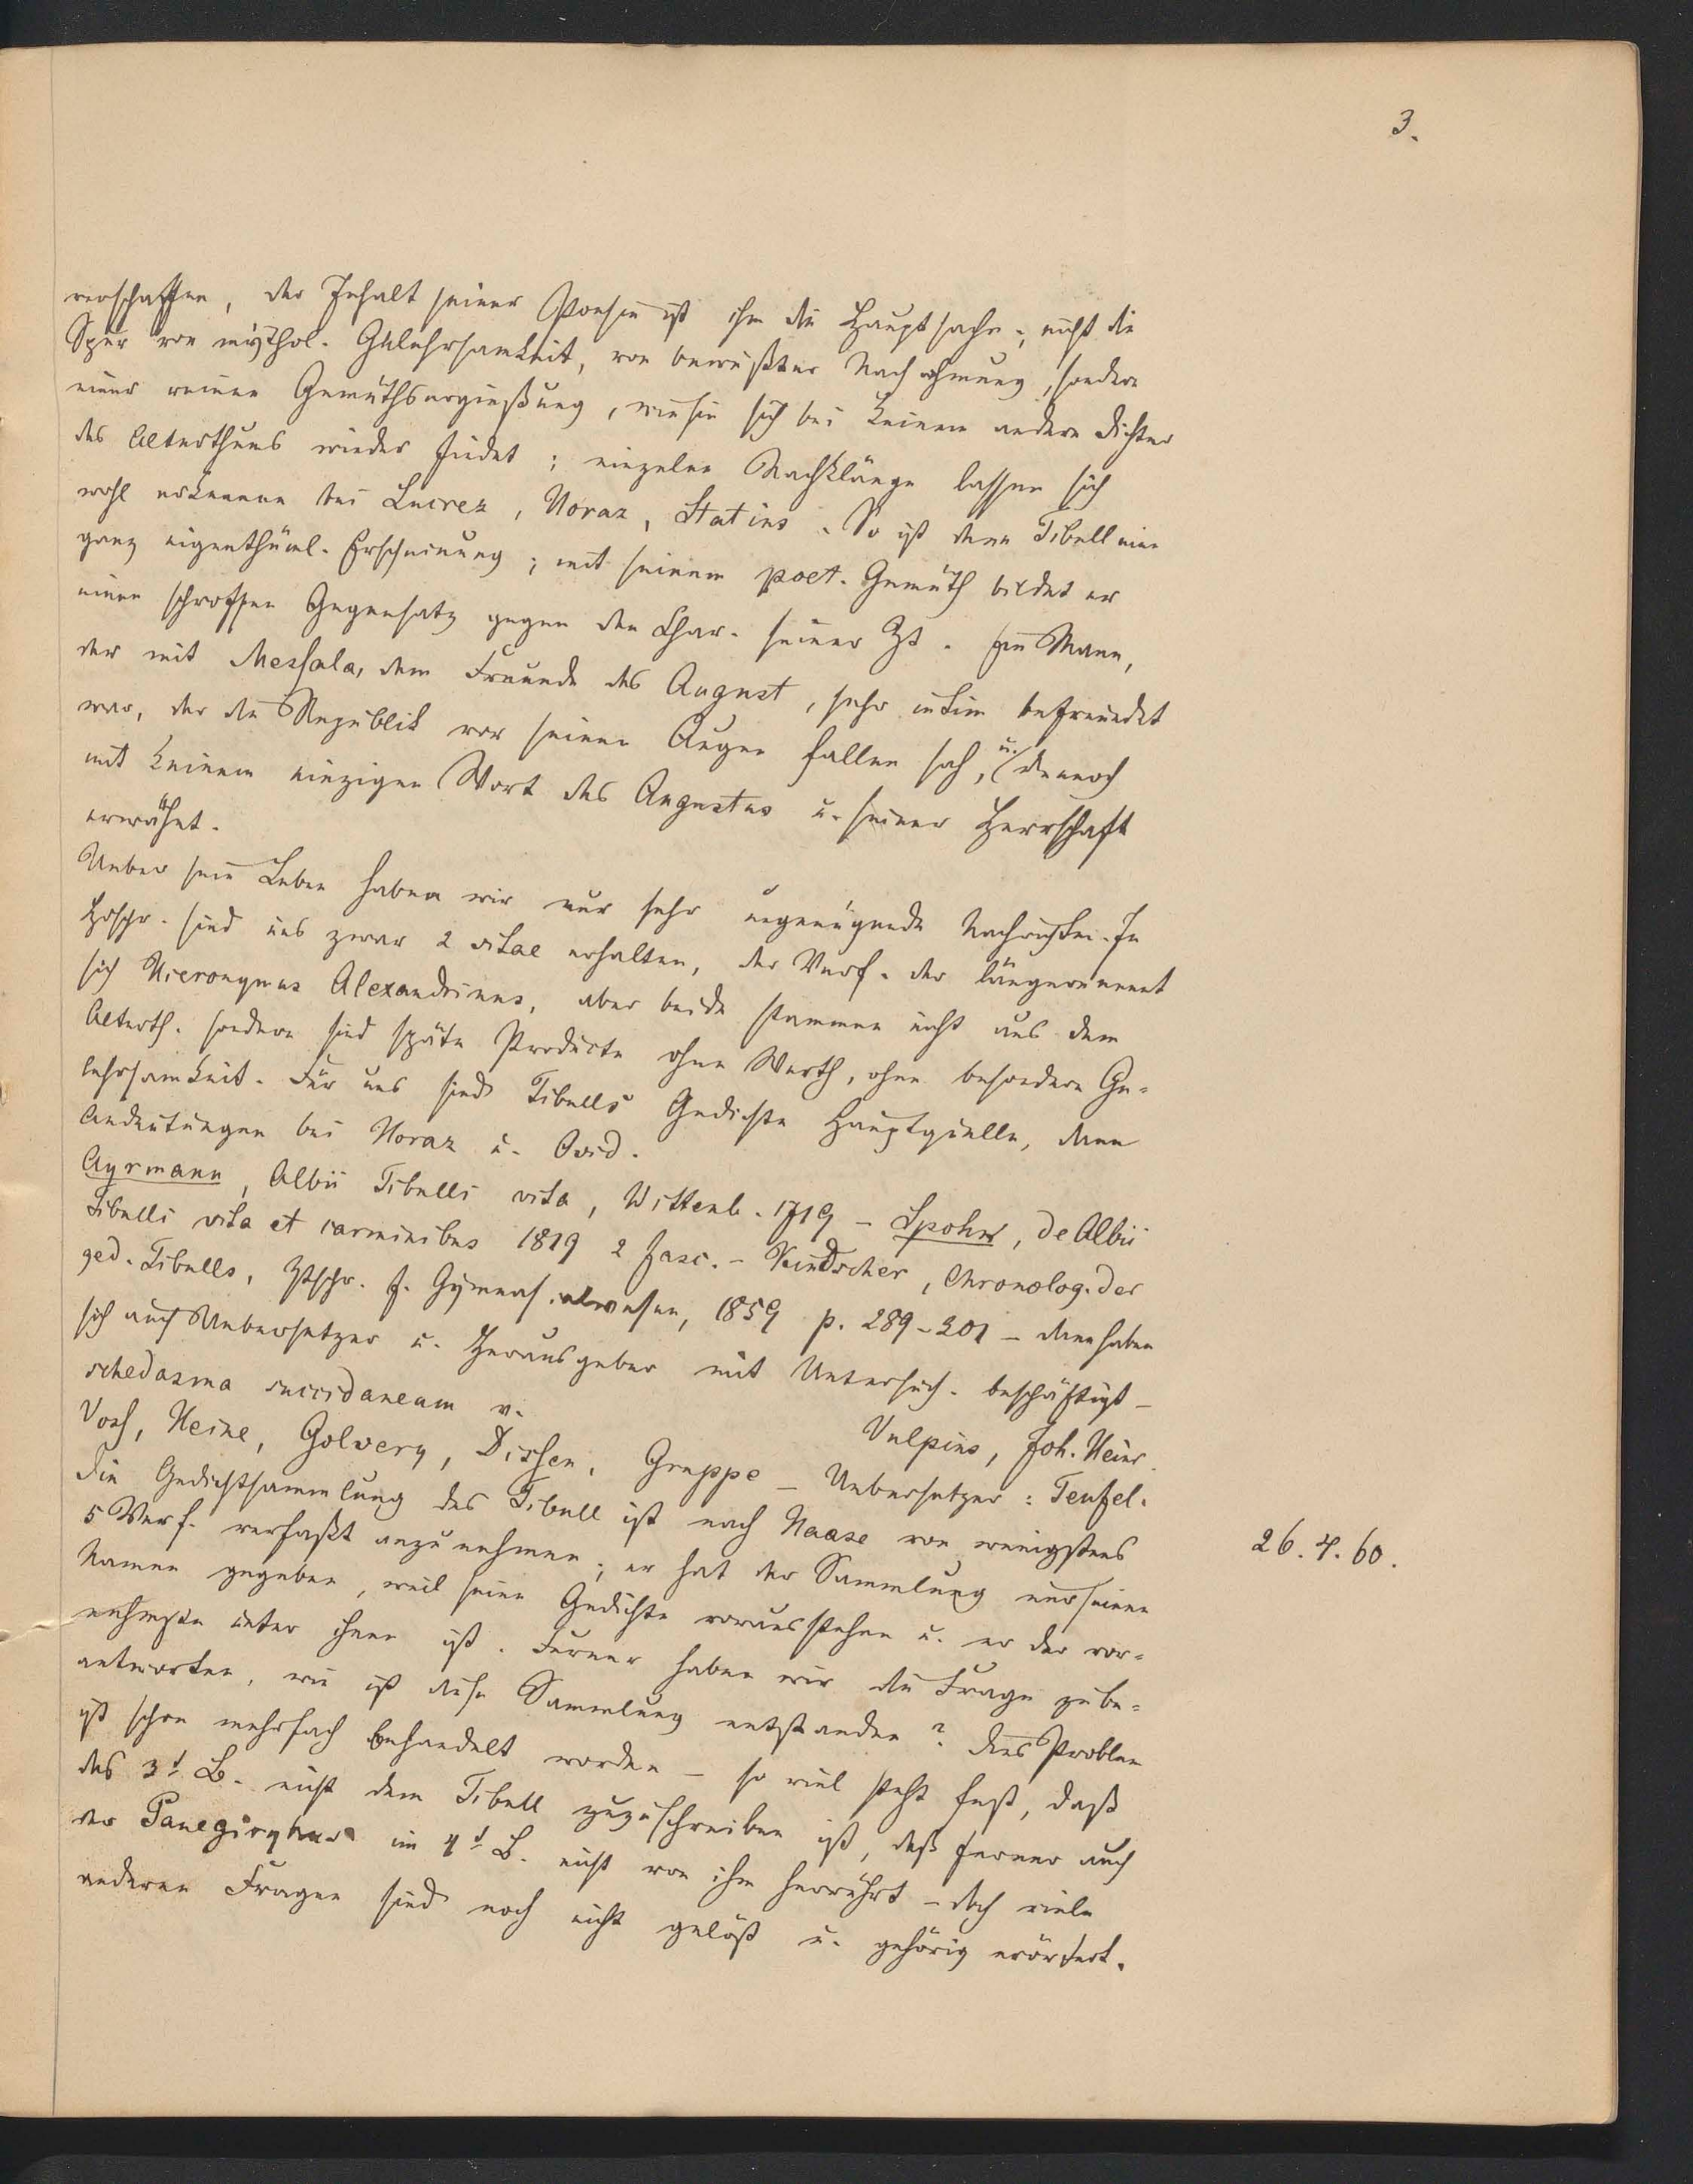 3.
verschaffen, der Inhalt seiner Poesie ist ihm die Hauptsache; nicht die
Spur von mythol. Gelehrsamkeit, von bewußter Nachahmung, sondern
einer reinen Gemüthsergießung, wie sie sich bei keinem andern Dichter
des Alterthums wieder findet; einzelne Nachklänge lassen sich
wohl erkennen bei Lucrez, Horaz, Statius. So ist denn Tibull eine
ganz eigenthüml. Erscheinung; mit seinem poet. Gemüth bildet er
einen schroffen Gegensatz gegen den Char. seiner Zt. Ein Mann,
der mit Messala, dem Freunde des August, sehr intim befreundet
war, der die Republik vor seinen Augen fallen sah, u. dennoch
mit keinem einzigen Wort des Augustus u. seiner Herrschaft
erwähnt.
Ueber sein Leben haben wir nur sehr ungenügende Nachrichten. In
Hdschr. sind uns zwar 2 vitae erhalten, der Verf. der längeren nennt
sich Hieronymus Alexandrinus, aber beide stammen nicht aus dem
Alterth. sondern sind späte Producte ohne Werth, ohne besondere Ge-
lehrsamkeit. Für uns sind Tibulls Gedichte Hauptquelle, dann
Andeutungen bei Horaz u. Ovid.
Ayrmann, Albii Tibulli vita, Wittenb. 1719 – Spohn, de Albii
Tibulli vita et carminibus 1819 2 fasc. – Kindscher, Chronolog. der
ged. Tibulls, Ztschr. f. Gymnasialwesen, 1859 p. 289-301 – dann haben
sich auch Uebersetzer u. Herausgeber mit Untersuch. beschäftigt –
schedasma succidaneam v. Vulpius, Joh. Heinr.
Voss, Heine, Golbery, Dissen, Gruppe – Uebersetzer: Teufel.
Die Gedichtsammlung des Tibull ist nach Haase von wenigstens
26. 4. 60.
5 Verf. verfaßt anzunehmen; er hat der Sammlung nur seinen
Namen gegeben, weil seine Gedichte vorausstehen u. er der vor-
nehmste unter ihnen ist. Ferner haben wir die Frage zu be-
antworten, wie ist diese Sammlung entstanden? Dies Problem
ist schon mehrfach behandelt worden – so viel steht fest, daß
das 3t B. nicht dem Tibull zuzuschreiben ist, daß ferner auch
der Panegirykus im 4t B. nicht von ihm herrührt – doch viele
anderen Fragen sind noch nicht gelöst u. gehörig erörtert.